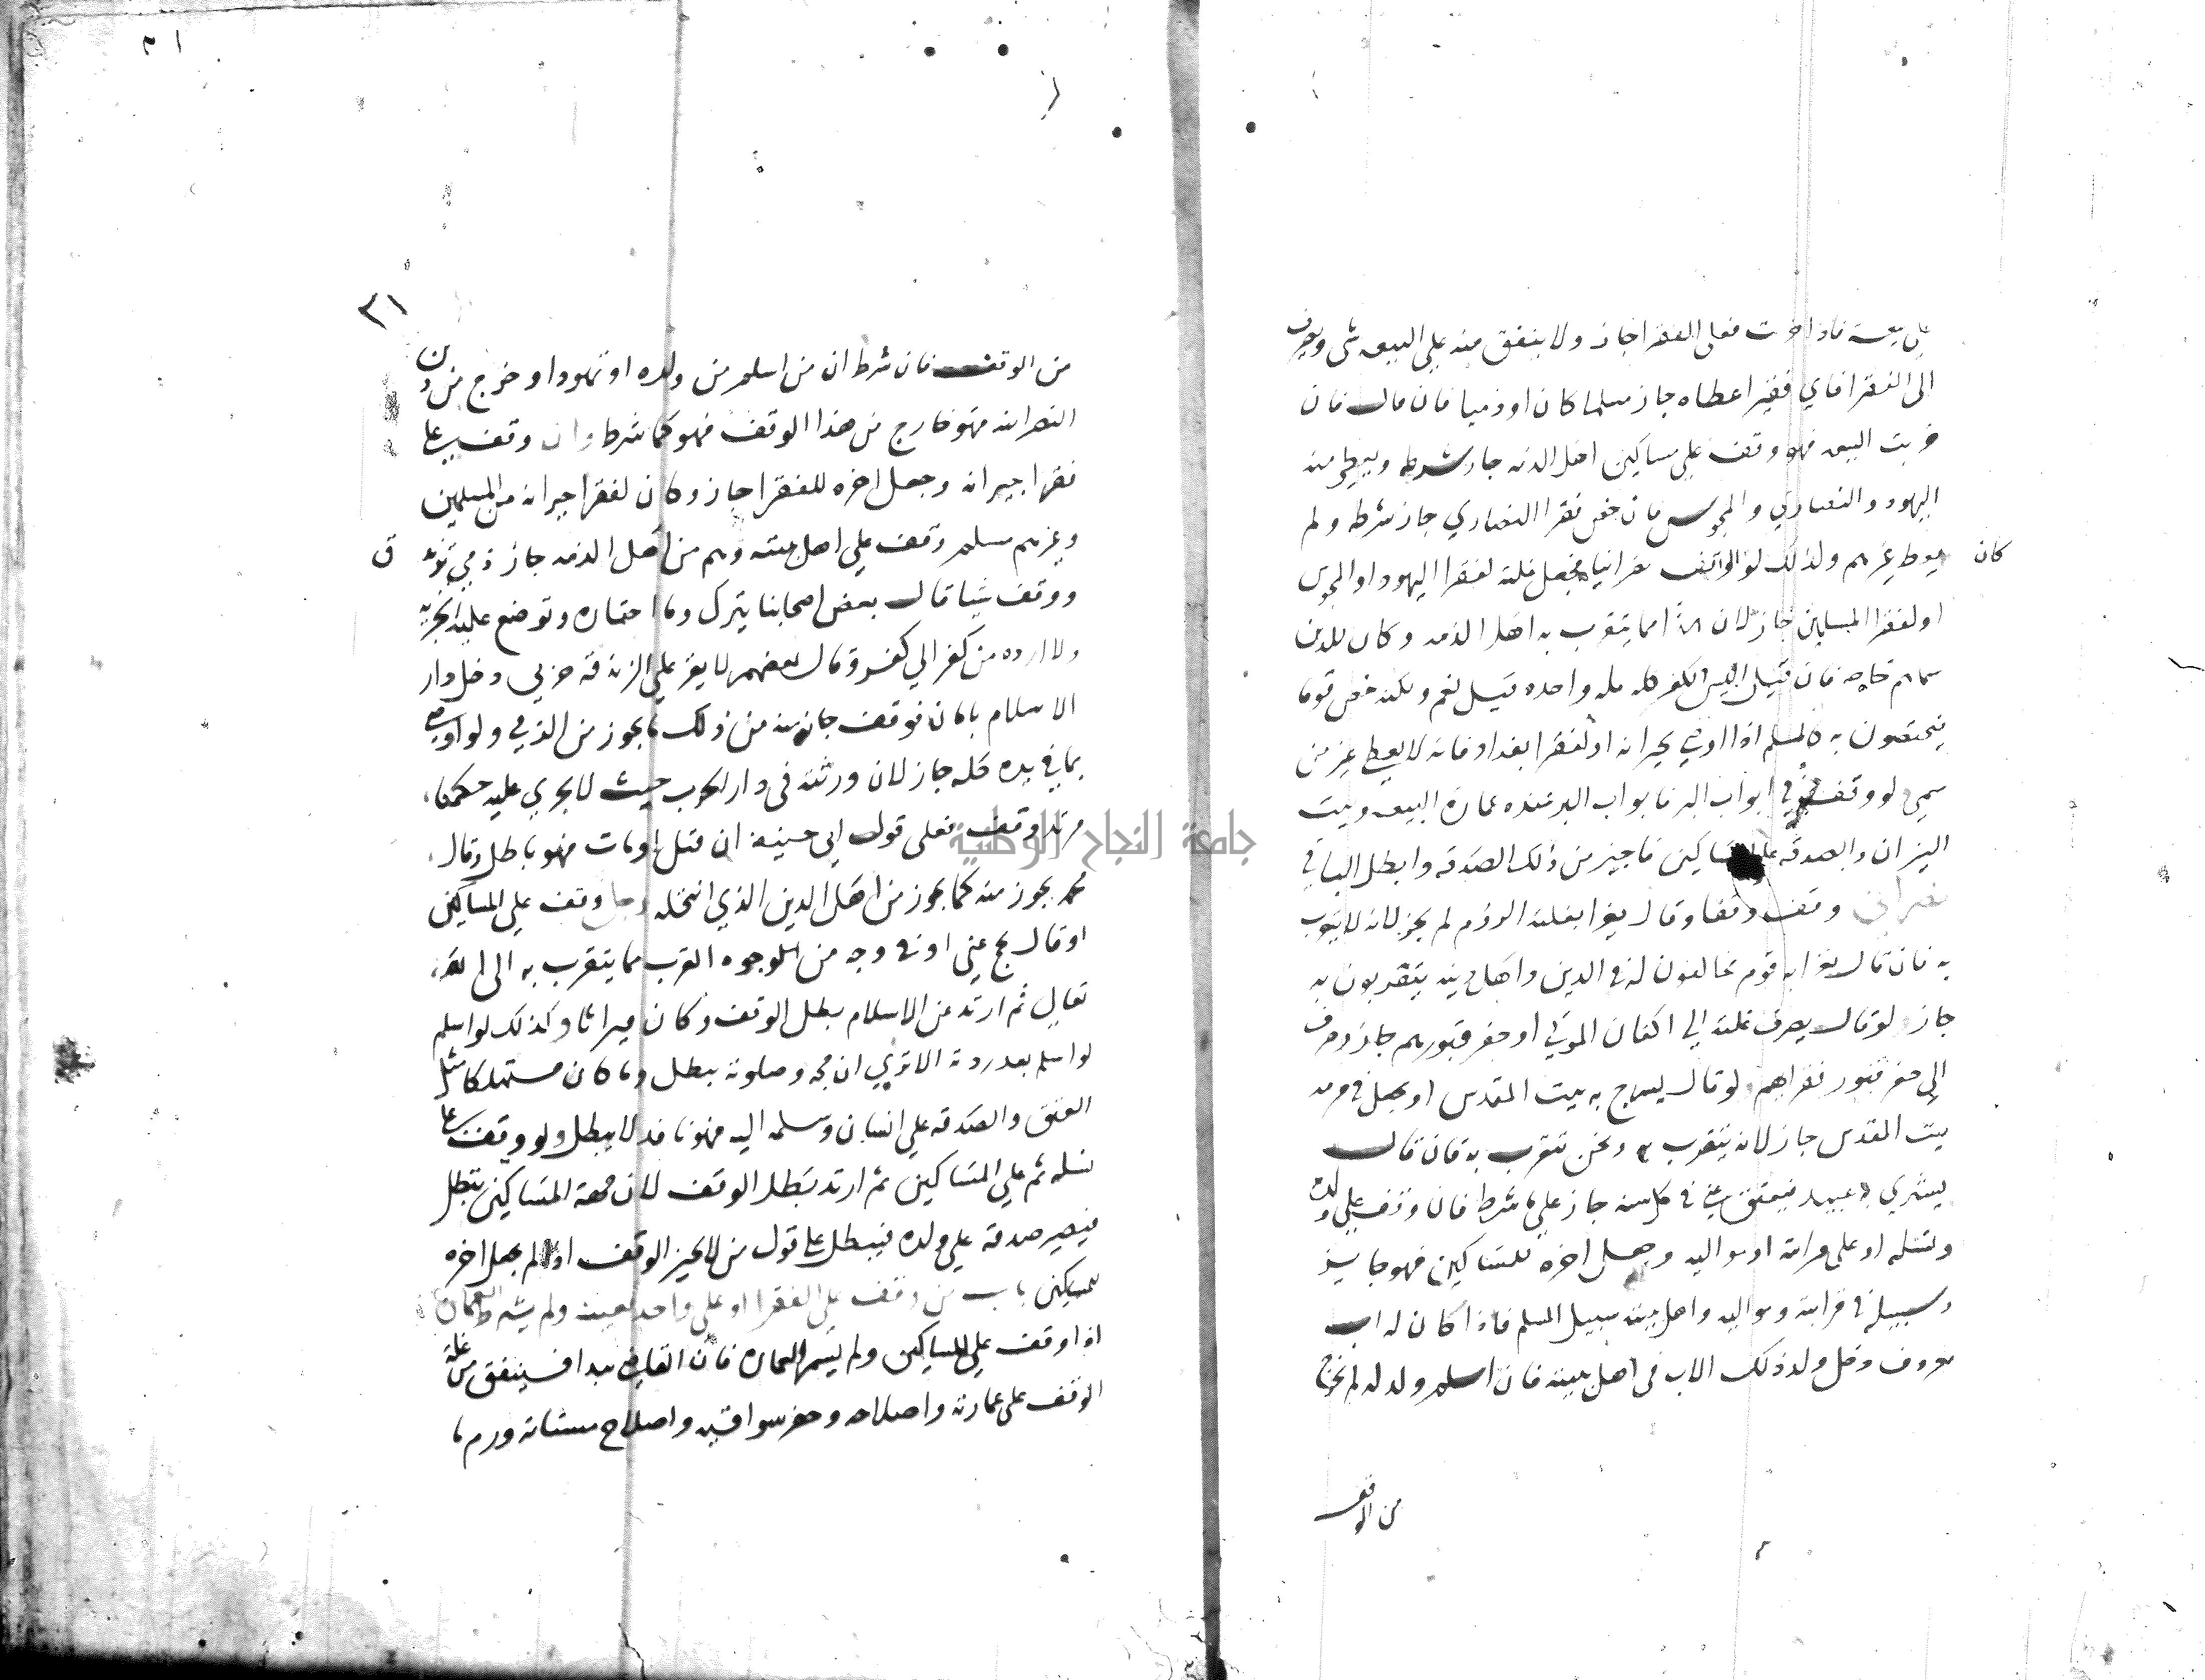 على بيعة فاذا خربت فعلى الفقرا جاز ولا ينفق منه على البيعه شى ويصرف
الى الفقرا فاي فقير اعطاه جاز مسلما كان او ذميا فان قال فان
خربت البيعه فهو وقف على مساكين اهل الذمه جاز شرطه ويعطى منه
اليهود والنصاري والمجوس فان خص فقرا النصاري جاز شرطه ولم
يعط غيرهم وكذلك لو كان الواقف نصرانيا فجعل غلته لفقرا اليهود او المجوس
او لفقرا المسلمين جاز لان هذا مما يتقرب به اهل الذمه وكان للذين
سماهم خاصه فان قيل اليس الكفر كله مله واحده قيل نعم ولكنه خص قوما
فيختصون به كالمسلم اذا اوصي لجيرانه او لفقرا بغداد فانه لا يعطي غير من
سمي لو وقف في ابواب البر فابواب البر عنده عمارة البيعه وبيت
النيران والصدقه على المساكين فاجيز من ذلك الصدقه وابطل الباقي
نصراني وقف وقفا وقال يغزا بغلته الروم لم يجز لانه لا يتقرب
به فان قال يغزا به قوم يخالفون له في الدين واهل دينه يتقربون به
جاز لو قال يصرف غلته الي اكفان الموتي او حفر قبورهم جاز وصرف
الي حفر قبور فقراهم لو قال يسرج به بيت المقدس او يجعل في مرمه
بيت المقدس جاز لانه يتقرب به ونحن نتقرب به فان قال
يشتري به عبيد فيعتق في كل سنه جاز علي ما شرط فان وقف علي ولده
ونسله او على قرابته او مواليه وجعل اخره للمساكين فهو جايز
وسبيله في قرابته ومواليه واهل بيته سبيل المسلم فاذا كان له اب
معروف دخل ولد ذلك الاب في اهل بيته فان اسلم ولد له لم يخرج
من الوقف
٣١
من الوقف فان شرط ان من اسلم من ولده او تهود او خرج من دين
النصرانيه فهو خارج من هذا الوقف فهو كما شرط وان وقف على
فقرا جيرانه وجعل اخره للفقرا جاز وكان لفقرا جيرانه من المسلمين
وغيرهم مسلم وقف على اهل بيته وهم من اهل الذمه جاز ذمي
ووقف شيا قال بعض اصحابنا يترك وما اختاره وتوضع عليه الجزيه
ولا ارده من كفر الي كفر وقال بعضهم لا يقر على الزندقه حربي دخل دار
الاسلام بامان فوقف جاز منه من ذلك ما يجوز من الذمي ولو اوصى
بما في يده كله جاز لان ورثته في دار الحرب حيث لا يجري عليه حكمنا
مرتد وقف فعلى قول ابي حنيفة ان قتل او مات فهو باطل وقال
محمد يجوز منه كما يجوز من اهل الدين الذي انتحله رجل وقف على المساكين
او قال يحج عني او في وجه من الوجوه القرب مما يتقرب به الى الله
تعالي ثم ارتد عن الاسلام بطل الوقف وكان ميراثا وكذلك لو اسلم
لو اسلم بعد ردته الا تري ان حجه وصلوته يبطل وما كان مستهلكا مثل
العتق والصدقه على انسان وسلمه اليه فهو نافذ لا يبطل ولو وقف على
نسله ثم على المساكين ثم ارتد يبطل الوقف لان جهة المساكين تبطل
فيصير صدقه على ولده فيبطل على قول من لا يجيز الوقف اذا لم يجعل اخره
للمساكين باب من وقف على الفقرا او على واحد بعينه ولم يشترط العمارة
اذا وقف على المساكين ولم يسم العماره فان القاضي يبدا فينفق من غلة
الوقف على عمارته واصلاحه وحفر سواقيه واصلاح مسناته ورم ما
جامعة النجاح الوطنية